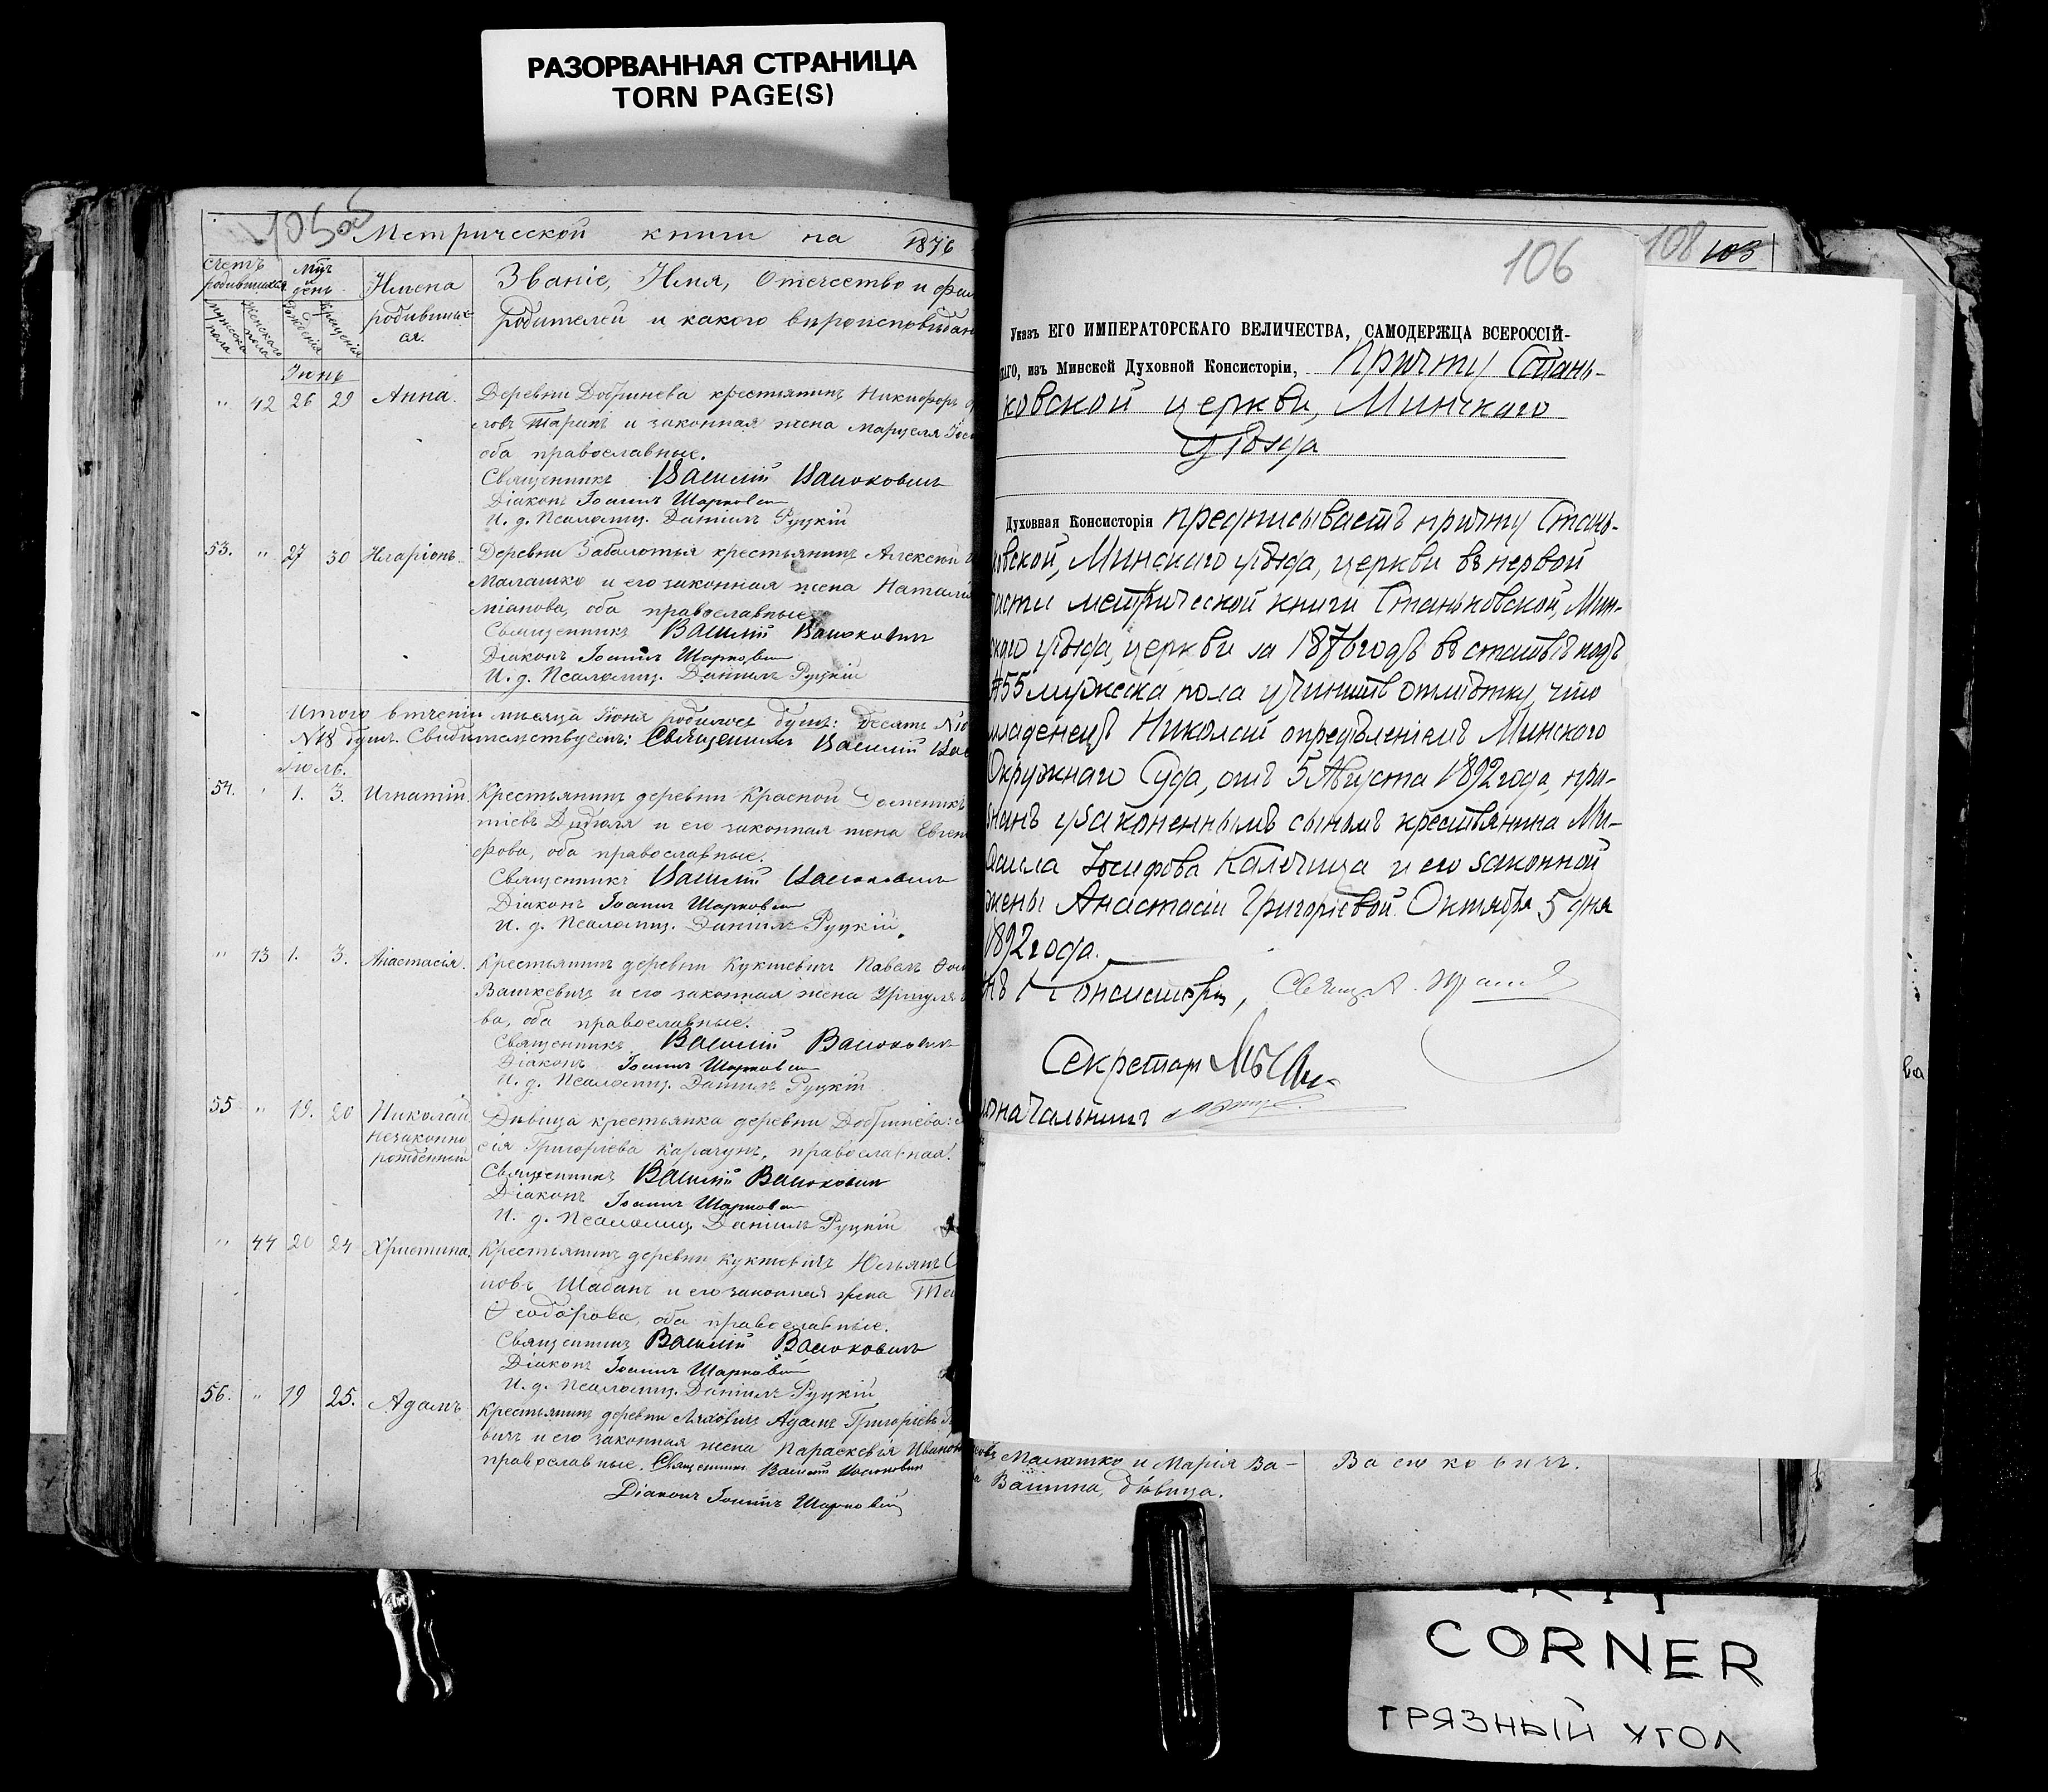 РАЗОРВАННАЯ СТРАНИЦА
TORN PAGE(S)
105 об
Метрической книги на 1876
Счетъ родившихся
Мцъ и день
Имена родивших-ся.
Званіе, Имя, Отчество и фам
родителей и какого вѣроисповѣдан
мужеска пола
женскаго пола
рожденія
крещенія
Іюнь
" 42 26 29 Анна.
Деревни Добринева крестьянинъ Никифоръ
и законная жена Марцеля
оба православные.
Священникъ Василій Васюковичъ
Діаконъ Іоаннъ Шарковъ
И. д. Псаломщ. Даніилъ Руцкій
53. " 27 30 Иларіонъ.
Деревни Заболотья крестьянинъ Алексѣй
Малашко и его законная жена Наталія
міанова, оба православные.
Священникъ Василій Васюковичъ
Діаконъ Іоаннъ Шарковъ
И. д. Псаломщ. Даніилъ Руцкій
Итого втеченіи мѣсяца Іюня родилось душъ: десять №10
№18 душъ. Свидѣтельствуемъ: Священникъ Василій Вас
Іюль.
54. " 1. 3. Игнатій.
Крестьянинъ деревни Красной Доменикъ
тіевъ Дидюля и его законная жена Евген
фова, оба православные.
Священникъ Василій Васюковичъ
Діаконъ Іоаннъ Шарковъ
И. д. Псаломщ. Даніилъ Руцкій.
" 43 1. 3. Анастасія.
Крестьянинъ деревни Куктевичъ Павелъ
Вашкевичъ и его законная жена Уршуля
ва, оба православные.
Священникъ Василій Васюковичъ
Діаконъ Іоаннъ Шарковъ
И. д. Псаломщ. Даніилъ Руцкій
55 " 19. 20 Николай незаконно рожденный
Дѣвица крестьянка деревни Добринева:
сія Григоріева Карачунъ, православная.
Священникъ Василій Васюковичъ
Діаконъ Іоаннъ Шарковъ
И. д. Псаломщ. Даніилъ Руцкій
" 44 20 24 Христина.
Крестьянинъ деревни Куктевичъ Юльянъ С
новъ Шабанъ и его законная жена Те
Ѳеодорова, оба православные.
Священникъ Василій Васюковичъ
Діаконъ Іоаннъ Шарковъ
И. д. Псаломщ. Даніилъ Руцкій
56. " 19 25. Адамъ
Крестьянинъ деревни Ляховичъ Адамъ Григоріевъ
вичъ и его законная жена Параскевія Иванов
православные. Священникъ Василій Васюковичъ
Діаконъ Іоаннъ Шарковъ
106
108 103
Указъ ЕГО ИМПЕРАТОРСКАГО ВЕЛИЧЕСТВА, САМОДЕРЖЦА ВСЕРОССІЙ-
каго, изъ Минской Духовной Консисторіи, Причту Стань-
ковской церкви, Минскаго
уѣзда
Духовная Консисторія предписываетъ причту Стань-
ковской, Минскаго уѣзда, церкви въ первой
части метрической книги Станьковской, Мин-
скаго уѣзда, церкви за 1876 годъ въ статьѣ подъ
№55 мужеска пола учинить отмѣтку, что
младенецъ Николай опредѣленіемъ Минского
Окружнаго Суда, отъ 5 Августа 1892 года, при-
знанъ узаконеннымъ сыномъ крестьянина Ми-
хаила Іосифова Калечица и его законной
жены Анастасіи Григоріевой. Октября 5 дня
1892 года.
Консисторіи, Свящ. А.
Секретарь
лоначальникъ
Малашко и Марія Ва-
Вашина, дѣвица.
Васюковичъ.
ва
CORNER
ГРЯЗНЫЙ УГОЛ